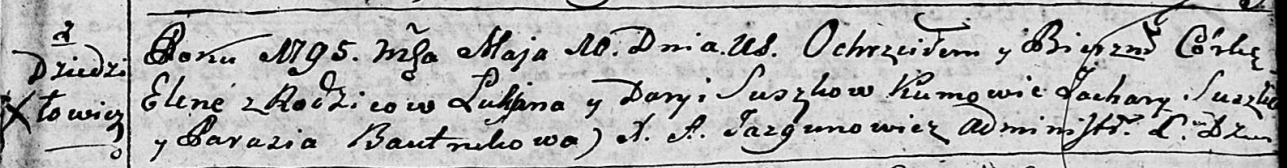 z
Dziedzi
łowicz
Roku 1795. Mša Maja 10. Dnia. Us. Ochrzciłem y Bierzmł Córkę
Elenę z Rodzicow Łukjana y Daryi Suszkow Kumowie Zachary Suszko
y Parazia Bautrukowa) A. A. Jazgunowicz Administr. C. Dzie